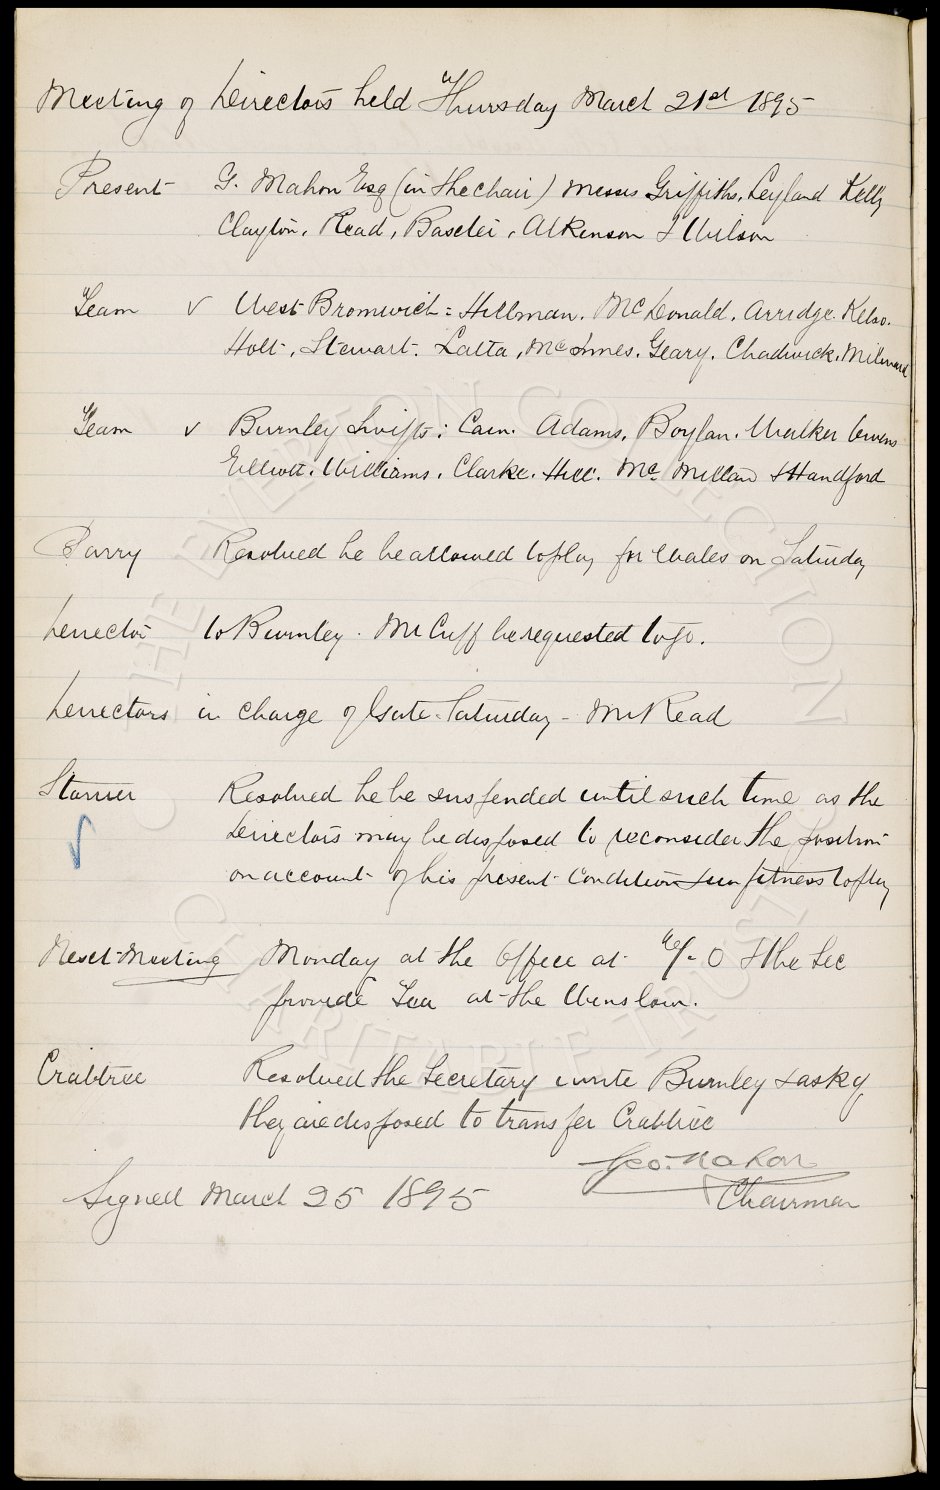 Meeting of Directors held Thursday March 21st 1895
Present G. Mahon Esq (in the chair) Messrs Griffiths, Leyland Kelly
Clayton, Read, Baxter, Atkinson & Wilson
Team v West Bromwich: Hillman. McDonald. Arridge. Kelso.
Holt, Stewart. Latta, McInnes. Geary. Chadwick. Milward
Team v Burnley Swifts: Cain. Adams, Boylan. Walker Owens
Elliott. Williams. Clarke. Hill. McMillan & Handford
Parry Resolved he be allowed to play for Wales on Saturday
Director to Burnley. Mr Cuff be requested to go.
Directors in charge of Gate Saturday - Mr Read
Storrier Resolved he be suspended until such time as the
Directors may be disposed to reconsider the position
on account of his present condition & unfitness to play
Next Meeting Monday at the Office at & the Sec
provide Tea at the Winslow.
Crabtree Resolved the Secretary write Burnley & ask if
they are disposed to transfer Crabtree
Geo. Mahon
Signed March 25 1895 Chairman
THE EVERTON COLLECTION
CHARITABLE TRUST